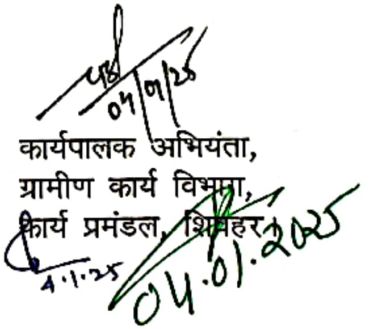 04/01/25
कार्यपालक अभियंता,
ग्रामीण कार्य विभाग,
कार्य प्रमंडल, शिवहर।
4.1.25
04.01.2025